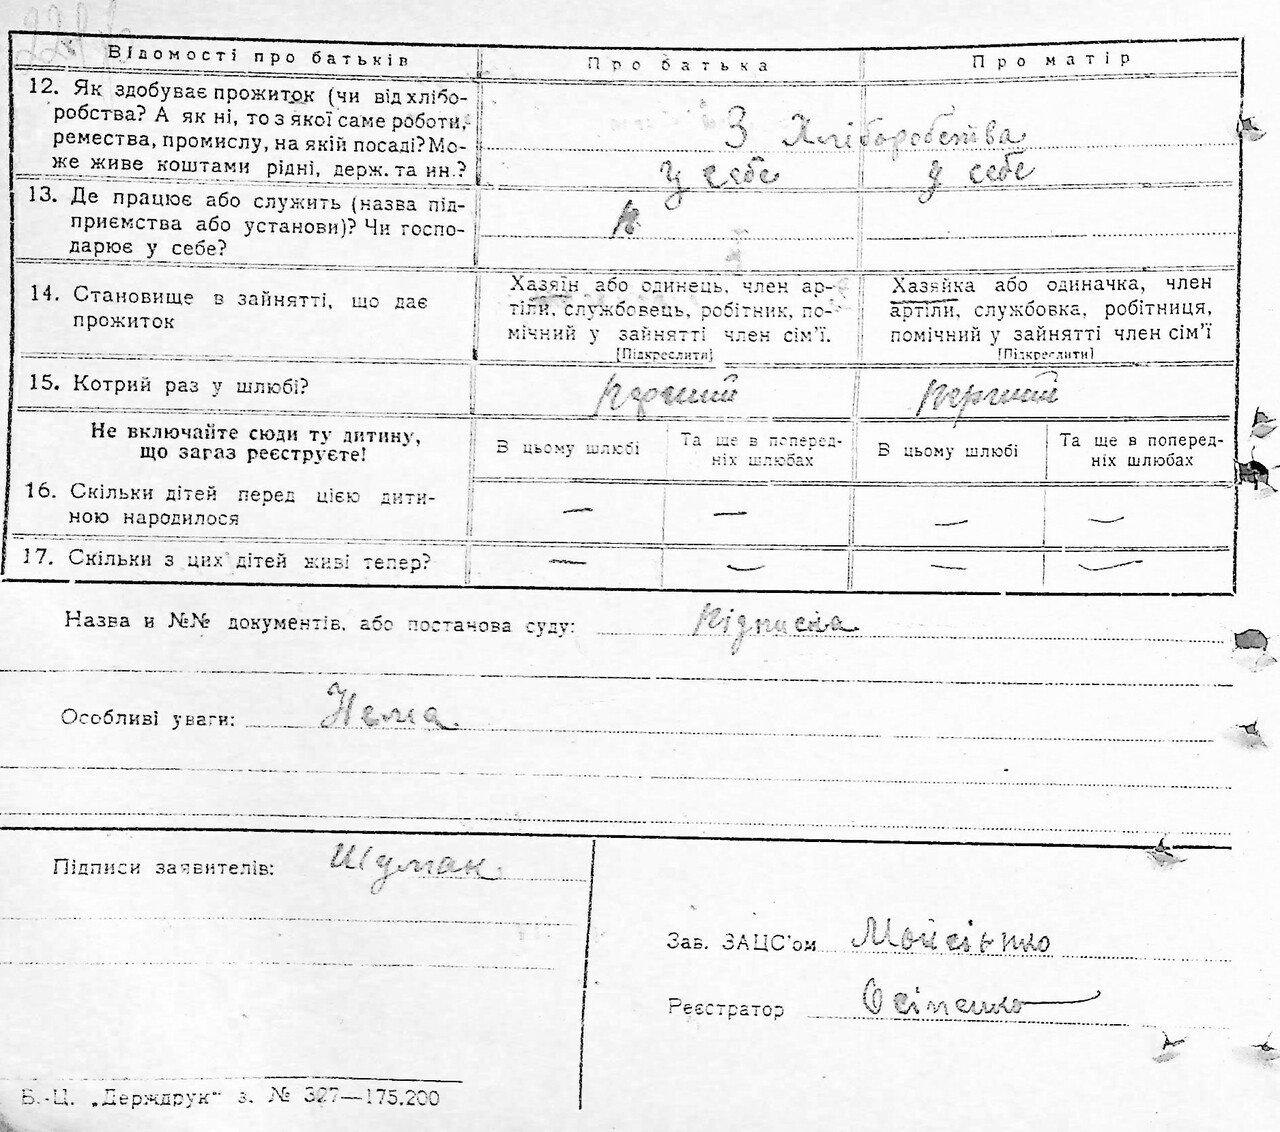 Відомості про батьків Про батька Про матір
12. Як здобуває прожиток (чи від хлібо-
робства? А як ні, то з якої саме роботи,
ремества, промислу, на якій посаді? Мо-
же живе коштами рідні, держ. та ин.?
З Хліборобства
у себе у себе
13. Де працює або служить (назва під-
приємства або установи)? Чи госпо-
дарює у себе?
14. Становище в зайнятті, що дає
прожиток
Хазяїн або одинець, член ар-
тіли, службовець, робітник, по-
мічний у зайнятті член сім'ї.
[Підкреслити]
Хазяйка або одиначка, член
артіли, службовка, робітниця,
помічний у зайнятті член сім'ї
[Підкреслити]
15. Котрий раз у шлюбі? перший перший
Не включайте сюди ту дитину,
що зараз реєструєте!
В цьому шлюбі
Та ще в поперед-
ніх шлюбах
В цьому шлюбі
Та ще в поперед-
ніх шлюбах
16. Скільки дітей перед цією дити-
ною народилося — — — —
17. Скільки з цих дітей живі тепер? — — — —
Назва и №№ документів, або постанова суду: Підписка
Особливі уваги: Нема
Підписи заявителів: Шумак
Зав. ЗАЦС'ом Мойсієнко
Реєстратор Осіпенко
Б.-Ц. „Держдрук" з. № 327—175.200